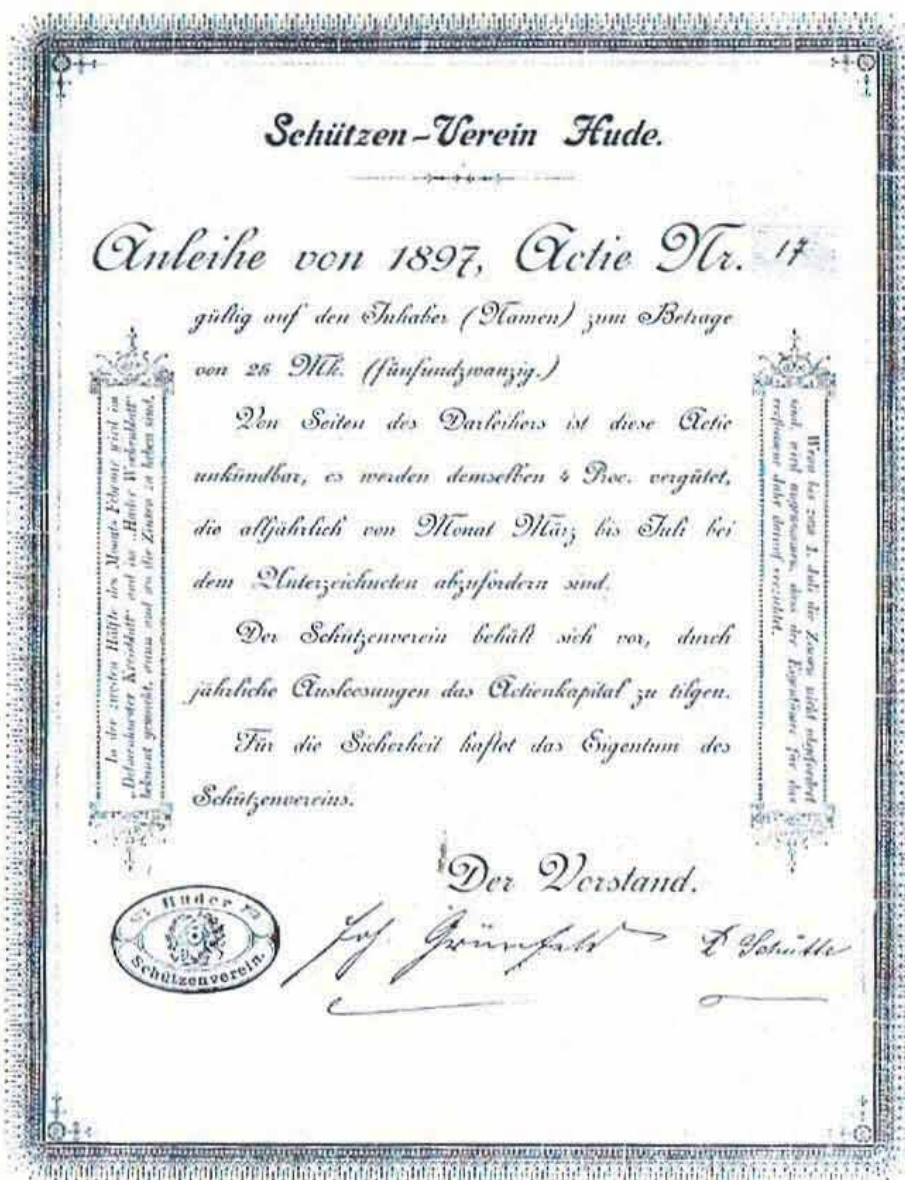 Schützen-Verein Hude.
Anleihe von 1897, Actie Nr. 17
gültig auf den Inhaber (Namen) zum Betrage
von 25 Mk. (fünfundzwanzig.)
Von Seiten des Darleihers ist diese Actie
unkündbar, es werden demselben 4 Proc. vergütet,
die alljährlich von Monat März bis Juli bei
dem Unterzeichneten abzufordern sind.
Der Schützenverein behält sich vor, durch
jährliche Ausloosungen das Actienkapital zu tilgen.
Für die Sicherheit haftet das Eigentum des
Schützenvereins.
In der zweiten Hälfte des Monats Februar wird im
„Delmenhorster Kreisblatt" und im „Huder Wochenblatt"
bekannt gemacht, wann und wo die Zinsen zu heben sind.
Wenn bis zum 1. Juli die Zinsen nicht abgefordert
sind, wird angenommen, dass der Eigentümer für das
verflossene Jahr darauf verzichtet.
Der Vorstand.
Huder
Schützenverein.
Joh. Grünefeld
Schütte